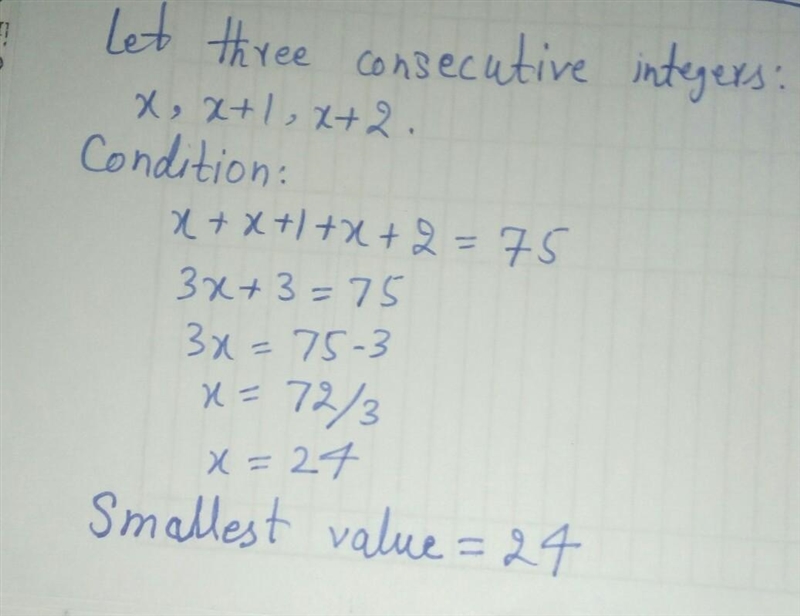 Let three consecutive integers:
x, x+1, x+2.
Condition:
x + x+1+x+2 = 75
3x+3 = 75
3x = 75-3
x = 72/3
x = 24
Smallest value = 24